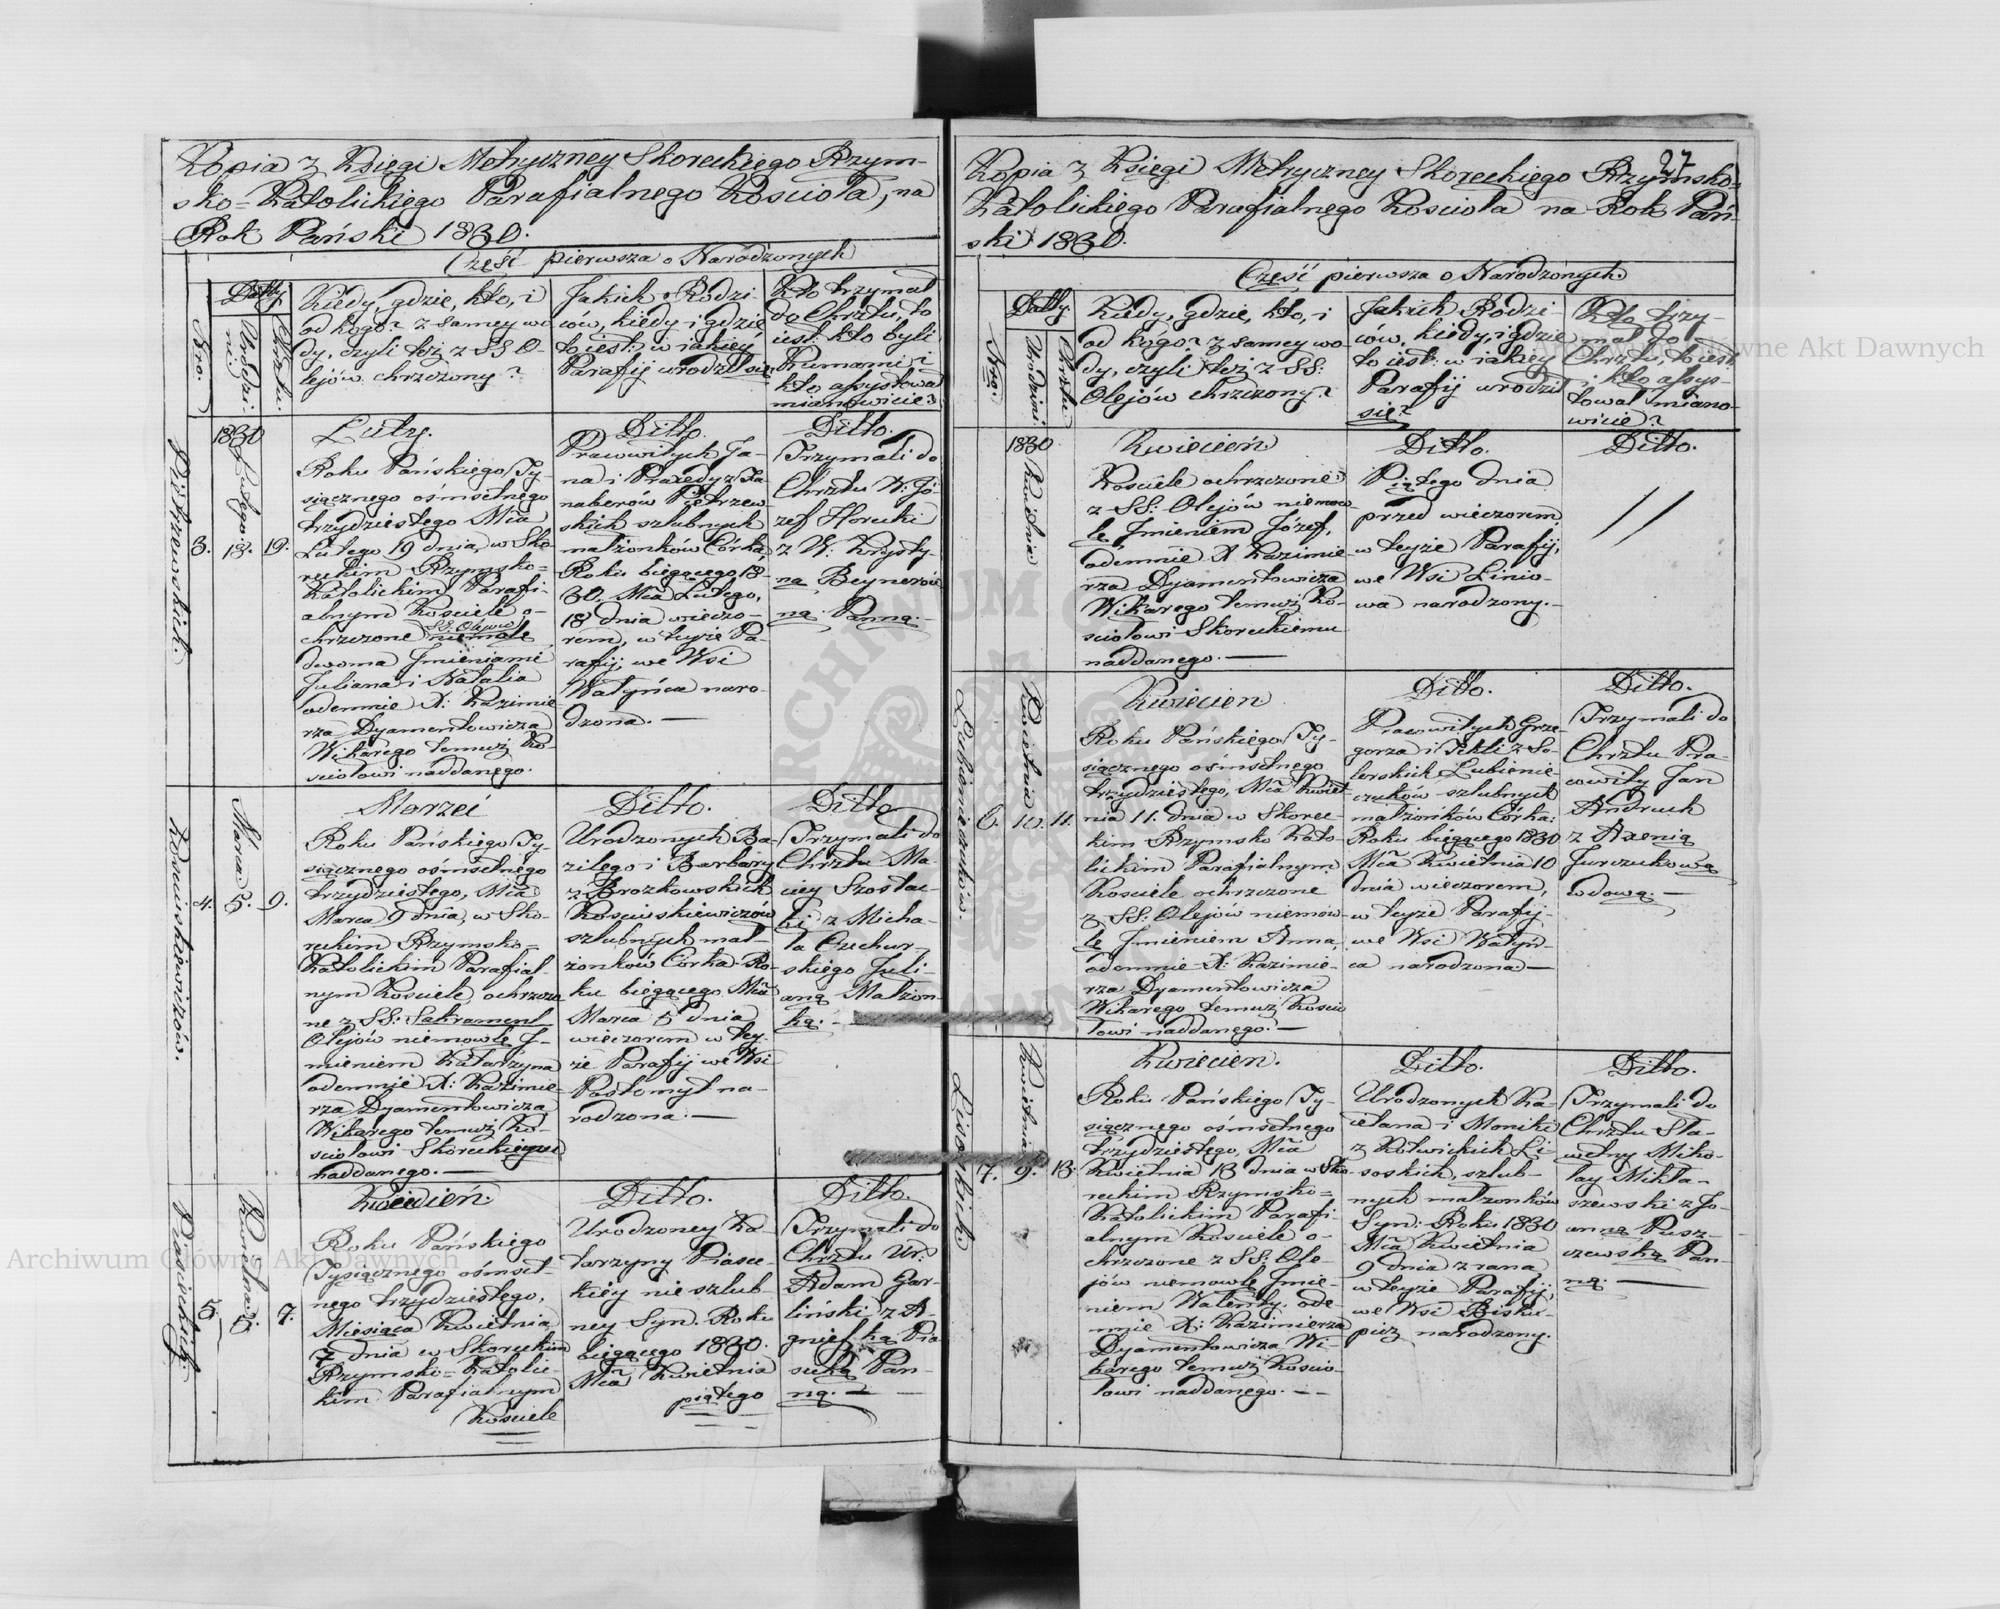 Kopia z Księgi Metryczney Skoreckiego Rzym-
sko=Katolickiego Parafialnego Kościoła, na
Rok Pański 1830.
Część pierwsza o Narodzonych
Nro.
Datty
Urodzi-
ni.
Chrztu.
Kiedy, gdzie, kto, i
od kogo? z samey wo
dy, czyli też z SS O-
lejów chrzczony?
Jakich Rodzi-
ców, kiedy i gdzie
to iest: w iakiéy
Parafij urodził się
Kto trzymał
do Chrztu, to
iest: kto byli
Kumami i
kto assystował
mianowicie?
Pietrzewskich.
3.
1830
Lutego
18.
19.
Luty.
Roku Pańskiego Ty-
siącznego óśmsetnego
trzydziestego Mca
Lutego 19 dnia, w Sko-
reckim Rzymsko=
Katolickim Parafi-
alnym Kościele o-
chrzczone SS. Olejów niemole
dwoma Jmieniami
Juliana i Natalia
odemnie X: Kazimie
rza Dyamentowicza
Wikarego temuż Ko-
ściołowi naddanego.
Ditto.
Prawowitych Ja-
na i Praxedy z Ja
naberów Pietrzew
skich szlubnych
małżonków Córka,
Roku bieżącego 18-
30. Mca Lutego,
18 dnia wieczo-
rem, w teyże Pa-
rafij, we Wsi
Watyńca naro-
dzona.—
Ditto.
Trzymali do
Chrztu W: Jó-
zef Horecki
z W: Krysty-
ną Beynerów
ną Panną.
Konwiskiewiczów.
4.
Marca
5.
9.
Marzec
Roku Pańskiego Ty-
siącznego óśmsetnego
trzydziestego, Mca
Marca 9 dnia, w Sko-
reckim Rzymsko=
Katolickim Parafial-
nym Kościele, ochrzczo
ne z SS: Sakrament
Olejów niemowlę J-
mieniem Katarzyna
odemnie X: Kazimie-
rza Dyamentowicza
Wikarego temuż Ko-
ściołowi Skoreckiemu
naddanego.—
Ditto.
Urodzonych Ba-
zilego i Barbary
z Brozkowskich
szlubnych mał-
żonków Córka. Ro-
ku bieżącego Mca
Marca 5 dnia
wieczorem w tey-
że Parafij we Wsi
Postomyt na-
rodzona.—
Ditto
Trzymali do
Chrztu Ma-
ciey Szostac-
ki z Micha-
ła Czechur-
skiego Juli-
aną Małżon-
ką.
Piaseckich
5.
Kwietnia
5
7.
Kwiecień.
Roku Pańskiego
Tysiącznego óśmset-
nego trzydziestego,
Miesiąca Kwietnia
7 dnia w Skoreckim
Rzymsko=Katolic
kim Parafialnym
Kościele
Ditto.
Urodzoney Ka-
tarzyny Piasec-
kiéy nie szlub-
ney Syn. Roku
bieżącego 1830.
Mca Kwietnia
piątego
Ditto.
Trzymali do
Chrztu Ur:
Adam Gar-
liński z A-
gnieszką Pia-
secką Pan-
ną.—
27
Kopia z Księgi Metryczney Skoreckiego Rzymsko=
Katolickiego Parafialnego Kościoła na Rok Pań-
ski 1830.
Część pierwsza o Narodzonych
Nro.
Datty
Urodzini.
Chrztu.
Kiedy, gdzie, kto, i
od kógo? z samey wo
dy, czyli też z SS:
Olejów chrzczony?
Jakich Rodzi-
ców, kiedy, i gdzie
to iest: w iakiey
Parafij urodził
się?
Kto trzy-
mał do
Chrztu, to iest:
i kto assys-
tował miano-
wicie?
1830
Kwietnia
Kwiecień
Kościele ochrzczone
z SS: Olejów niemow
lę Jmieniem Józef,
odemnie X Kazimie
rza Dyamentowicza
Wikarego temuż Ko-
ściołowi Skoreckiemu
naddanego.—
Ditto.
Piątego dnia
przed wieczorem,
w teyże Parafij,
we Wsi Linio-
wa narodzony.—
Ditto.
//
Łubienieczuków.
6.
Kwietnia
10.
11.
Kwiecień
Roku Pańskiego Ty-
siącznego óśmsetnego
trzydziestego, Mca Kwiet
nia 11. dnia w Skorec-
kim Rzymsko Kato-
lickim Parafialnym
Kościele ochrzczone
z SS: Olejów niemów-
lę Jmieniem Anna,
odemnie X: Kazimie-
rza Dyamentowicza
Wikarego temuż Kościo
łowi naddanego.—
Ditto.
Prawowitych Grze-
gorza i Tekli z So-
lerskich Łubienie-
czuków szlubnych
małżonków Córka:
Roku bieżącego 1830
Mca Kwietnia 10
dnia wieczorem,
w teyże Parafij
we Wsi Watyń-
ca narodzona.—
Ditto.
Trzymali do
Chrztu Pra-
cowity Jan
Andruch
z Axenią
Jurczukową
wdową.—
Lisoskich
7.
Kwietnia
9.
13.
Kwiecien.
Roku Pańskiego Ty-
siącznego óśmsetnego
trzydziestego, Mca
Kwietnia 13 dnia w Sko-
reckim Rzymsko=
Katolickim Parafi-
alnym Kościele o-
chrzczone z SS: Ole-
jów niemowlę Jmie-
niem Walenty. ode-
mnie X: Kazimierza
Dyamentowicza Wi-
karego temuż Kościo-
łowi naddanego.—
Ditto.
Urodzonych Ka-
ietana i Moniki
z Kotwickich Li
soskich, szlub-
nych małżonków
Syn: Roku 1830
Mca Kwietnia
9 dnia z rana
w teyże Parafij,
we Wsi Bisku-
picz narodzony.
Ditto.
Trzymali do
Chrztu Sła-
wetny Miko-
łay Mikła-
szewski z Jo-
anną Pusz-
czewską Pan-
ną.—
Archiwum Główne Akt Dawnych
Archiwum Główne Akt Dawnych